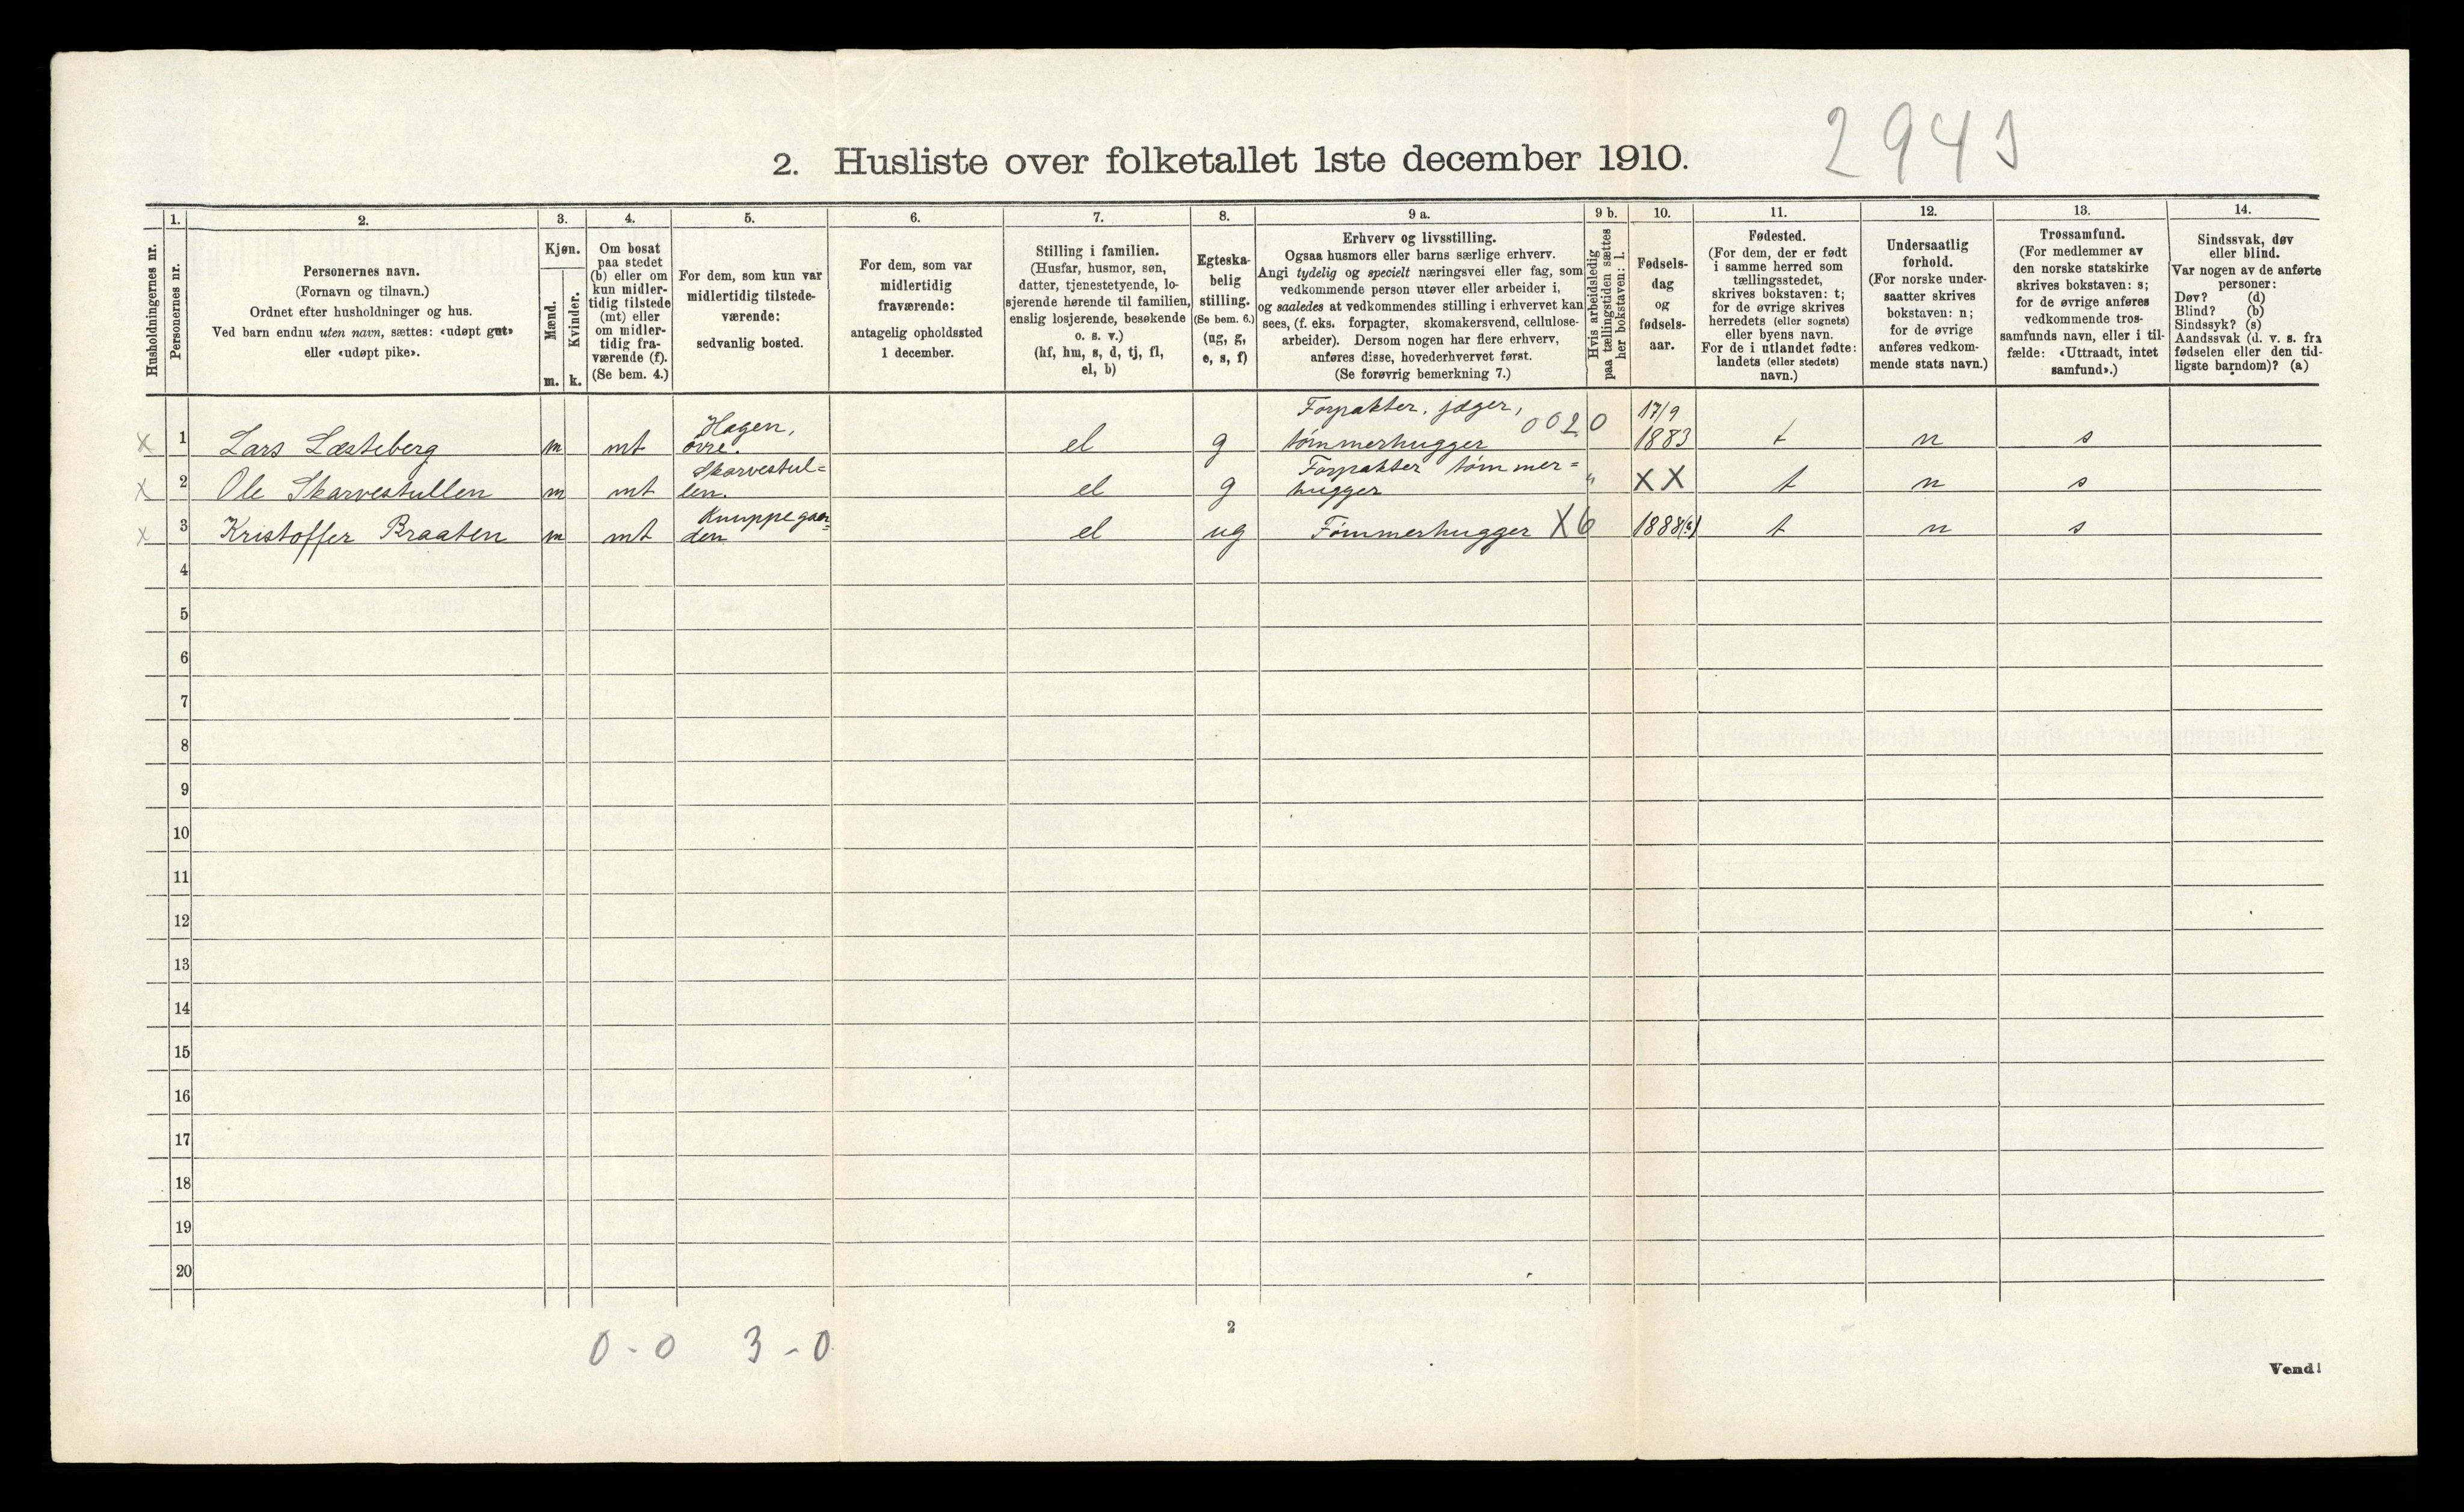 2943
2. Husliste over folketallet 1ste december 1910.
Husholdningernes nr.
1.
Personernes nr.
2.
Personernes navn.
(Fornavn og tilnavn.)
Ordnet efter husholdninger og hus.
Ved barn endnu uten navn, sættes: «udøpt gut»
eller «udøpt pike».
3.
Kjøn.
Mænd.
m.
Kvinder.
k.
4.
Om bosat
paa stedet
(b) eller om
kun midler-
tidig tilstede
(mt) eller
om midler-
tidig fra-
værende (f).
(Se bem. 4.)
5.
For dem, som kun var
midlertidig tilstede-
værende:
sedvanlig bosted.
6.
For dem, som var
midlertidig
fraværende:
antagelig opholdssted
1 december.
7.
Stilling i familien.
(Husfar, husmor, søn,
datter, tjenestetyende, lo-
sjerende hørende til familien,
enslig losjerende, besøkende
o. s. v.)
(hf, hm, s, d, tj, fl,
el, b)
8.
Egteska-
belig
stilling.
(Se bem. 6.)
(ug, g,
e, s, f)
9 a.
Erhverv og livsstilling.
Ogsaa husmors eller barns særlige erhverv.
Angi tydelig og specielt næringsvei eller fag, som
vedkommende person utøver eller arbeider i,
og saaledes at vedkommendes stilling i erhvervet kan
sees, (f. eks. forpagter, skomakersvend, cellulose-
arbeider). Dersom nogen har flere erhverv,
anføres disse, hovederhvervet først.
(Se forøvrig bemerkning 7.)
9 b.
Hvis arbeidsledig
paa tællingstiden sættes
her bokstaven: l.
10.
Fødsels-
dag
og
fødsels-
aar.
11.
Fødested.
(For dem, der er født
i samme herred som
tællingsstedet,
skrives bokstaven: t;
for de øvrige skrives
herredets (eller sognets)
eller byens navn.
For de i utlandet fødte:
landets (eller stedets)
navn.)
12.
Undersaatlig
forhold.
(For norske under-
saatter skrives
bokstaven: n;
for de øvrige
anføres vedkom-
mende stats navn.)
13.
Trossamfund.
(For medlemmer av
den norske statskirke
skrives bokstaven: s;
for de øvrige anføres
vedkommende tros-
samfunds navn, eller i til-
fælde: «Uttraadt, intet
samfund».)
14.
Sindssvak, døv
eller blind.
Var nogen av de anførte
personer:
Døv? (d)
Blind? (b)
Sindssyk? (s)
Aandssvak (d. v. s. fra
fødselen eller den tid-
ligste barndom)? (a)
Hagen, Forpakter, jæger, 17/9
x 1 Lars Læsteberg m mt øvre. el g tømmerhugger 0020 1883 t n s
Skarvestul= Forpakter tømmer=
x 2 Ole Skarvestullen m mt len. el g hugger " XX t n s
Knuppegaar=
x 3 Kristoffer Braaten m mt den el ug Tømmerhugger X6 1888 t n s
4
5
6
7
8
9
10
11
12
13
14
15
16
17
18
19
20
0 - 0 3 - 0
2
Vend!